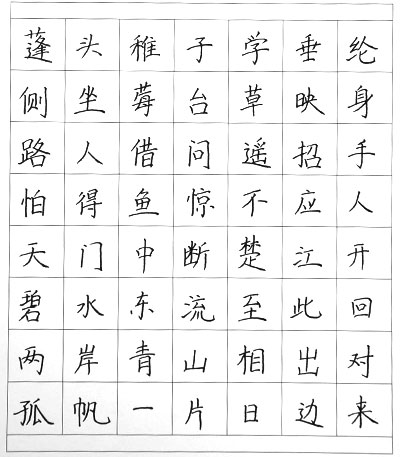 蓬头稚子学垂纶
侧坐莓台草映身
路人借问遥招手
怕得鱼惊不应人
天门中断楚江开
碧水东流至此回
两岸青山相对出
孤帆一片日边来